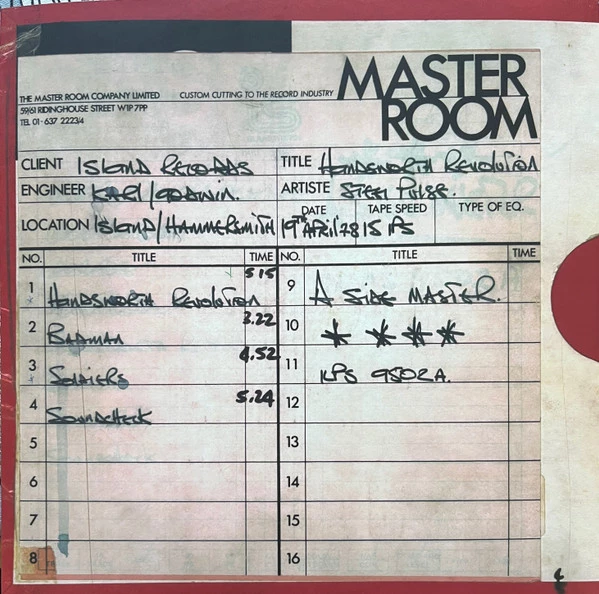 MASTER
ROOM
THE MASTER ROOM COMPANY LIMITED CUSTOM CUTTING TO THE RECORD INDUSTRY
59/61 RIDINGHOUSE STREET W1P 7PP
TEL 01-637 2223/4
CLIENT ISLAND RECORDS TITLE HANDSWORTH REVOLUTION
ENGINEER KARL/GODWIN. ARTISTE STEEL PULSE.
LOCATION ISLAND/HAMMERSMITH DATE 19TH APRIL 78 TAPE SPEED 15 IPS TYPE OF EQ.
NO. TITLE TIME NO. TITLE TIME
1 HANDSWORTH REVOLUTION 5 15 9 A SIDE MASTER.
2 BADMAN 3.22 10 * * * *
3 SOLDIERS 4.52 11 ILPS 9502A.
4 SOUNDCHECK 5.24 12
5 13
6 14
7 15
8 16